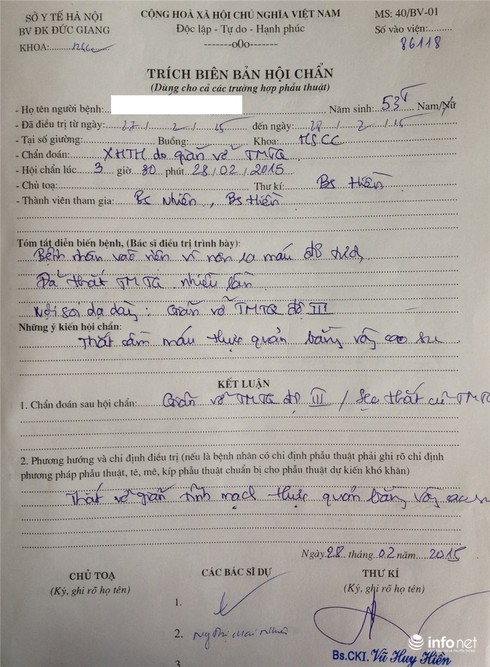 SỞ Y TẾ HÀ NỘI
BV ĐK ĐỨC GIANG
KHOA: HSCC
CỘNG HOÀ XÃ HỘI CHỦ NGHĨA VIỆT NAM
Độc lập - Tự do - Hạnh phúc
-------o0o-------
MS: 40/BV-01
Số vào viện:
86118
TRÍCH BIÊN BẢN HỘI CHẨN
(Dùng cho cả các trường hợp phẫu thuật)
- Họ tên người bệnh: Năm sinh: 53T Nam/Nữ
- Đã điều trị từ ngày: 27 / 2 / 15 đến ngày: 28 / 2 / 15
- Tại số giường: Buồng: Khoa: HSCC
- Chẩn đoán: XHTH do giãn vỡ TMTQ
- Hội chẩn lúc 3 giờ 30 phút 28 / 02 / 2015
- Chủ toạ: Thư kí: Bs Hiền
- Thành viên tham gia: Bs Nhiên, Bs Hiền
Tóm tắt diễn biến bệnh, (Bác sĩ điều trị trình bày):
Bệnh nhân vào viện vì nôn ra máu đỏ
Đã thắt TMTQ nhiều lần
Nội soi dạ dày: Giãn vỡ TMTQ độ III
Những ý kiến hội chẩn:
Thắt cầm máu thực quản bằng vòng cao su
KẾT LUẬN
1. Chẩn đoán sau hội chẩn: Giãn vỡ TMTQ độ III / Sẹo thắt cũ TMTQ
2. Phương hướng và chỉ định điều trị (nếu là bệnh nhân có chỉ định phẫu thuật phải ghi rõ chỉ định
phương pháp phẫu thuật, tê, mê, kíp phẫu thuật chuẩn bị cho phẫu thuật dự kiến khó khăn)
Thắt vỡ giãn tĩnh mạch thực quản bằng vòng cao su
Ngày 28 tháng 02 năm 2015
CHỦ TOẠ
(Ký, ghi rõ họ tên)
CÁC BÁC SĨ DỰ
1.
2.
3
THƯ KÍ
(Ký, ghi rõ họ tên)
Bs.CKI. Vũ Huy Hiền
infonet